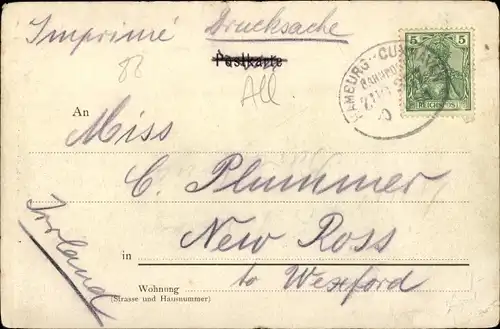 Imprimé Drucksache
Postkarte
88
All
HAMBURG-CUXHAVEN
BAHNPOST
5 5
REICHSPOST
An
Miss
C. Plummer
New Ross
in
to Wexford
Irland
Wohnung
(Strasse und Hausnummer)